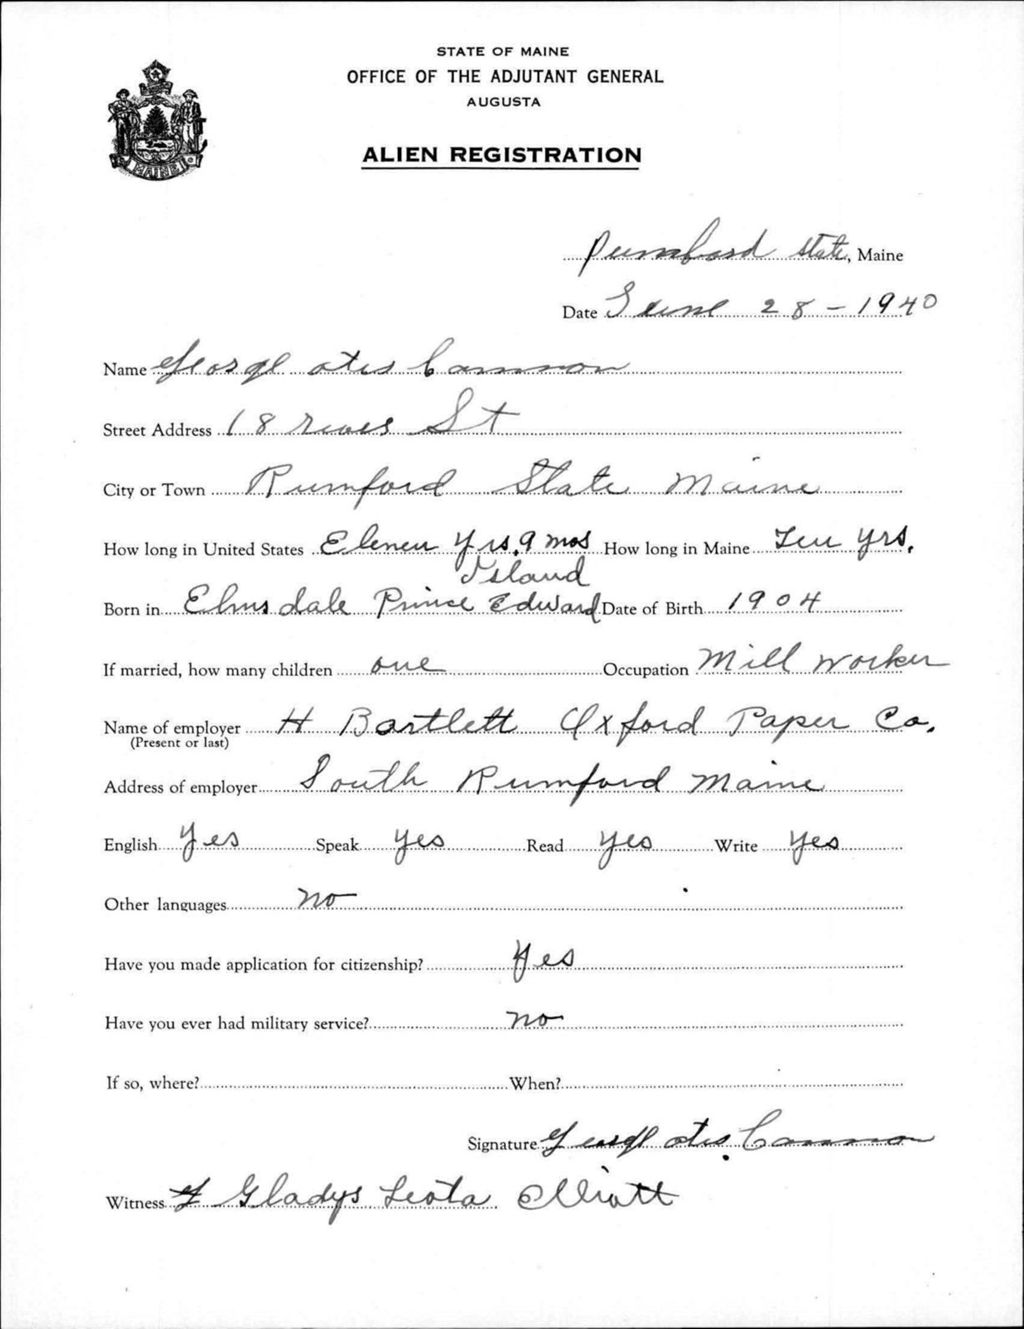 STATE OF MAINE
OFFICE OF THE ADJUTANT GENERAL
AUGUSTA
ALIEN REGISTRATION
MAINE
Rumford State, Maine
Date June 28 - 1940
Name George otis Cannon
Street Address 18 River St
City or Town Rumford State Maine
How long in United States Eleven Yrs, 9 mos How long in Maine Ten Yrs.
Island
Born in Elmsdale Prince Edward Date of Birth 1904
If married, how many children one Occupation Mill Worker
Name of employer H Bartlett Oxford Paper Co.
(Present or last)
Address of employer South Rumford Maine
English Yes Speak Yes Read Yes Write Yes
Other languages no
Have you made application for citizenship? Yes
Have you ever had military service? no
If so, where? When?
Signature George otis Cannon
Witness Gladys Leota Elliott